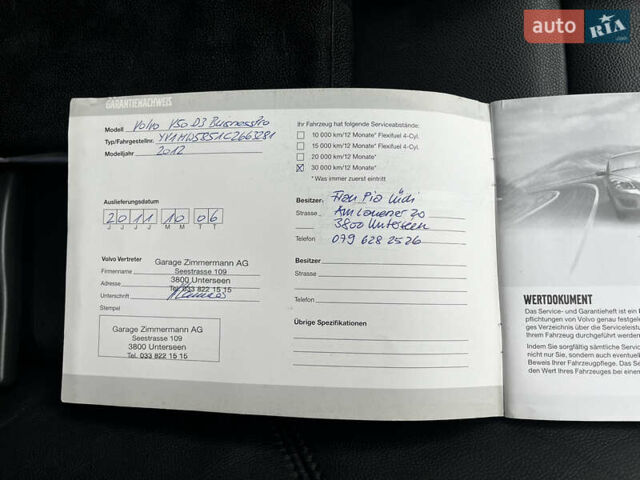 auto RIA.com
GARANTIENACHWEIS
Modell Volvo V50 D3 BusinessPro
Typ/Fahrgestellnr. YV1MW5851C2663281
Modelljahr 2012
Auslieferungsdatum
2 0 1 1 1 0 0 6
J J J J M M T T
Volvo Vertreter
Firmenname
Adresse
Unterschrift
Stempel
Garage Zimmermann AG
Seestrasse 109
3800 Unterseen
Tel. 033 822 15 15
Garage Zimmermann AG
Seestrasse 109
3800 Unterseen
Tel. 033 822 15 15
Ihr Fahrzeug hat folgende Serviceabstände:
10 000 km/12 Monate* Flexifuel 4-Cyl.
15 000 km/12 Monate* Flexifuel 4-Cyl.
20 000 km/12 Monate*
30 000 km/12 Monate*
* Was immer zuerst eintritt
Besitzer Frau Pia Lüdi
Strasse Am Lauener 20
3800 Unterseen
Telefon 079 628 25 26
Besitzer
Strasse
Telefon
Übrige Spezifikationen
WERTDOKUMENT
Das Service- und Garantieheft ist ein
pflichtungen von Volvo genau festgele
ges Verzeichnis über die Serviceleist
Ihrem Fahrzeug durchgeführt werden
Indem Sie sorgfältig sämtliche Service
nicht nur Sie, sondern auch eventuell
Beweis Ihrer Fahrzeugpflege. Das Se
den Wert Ihres Fahrzeuges bei einem